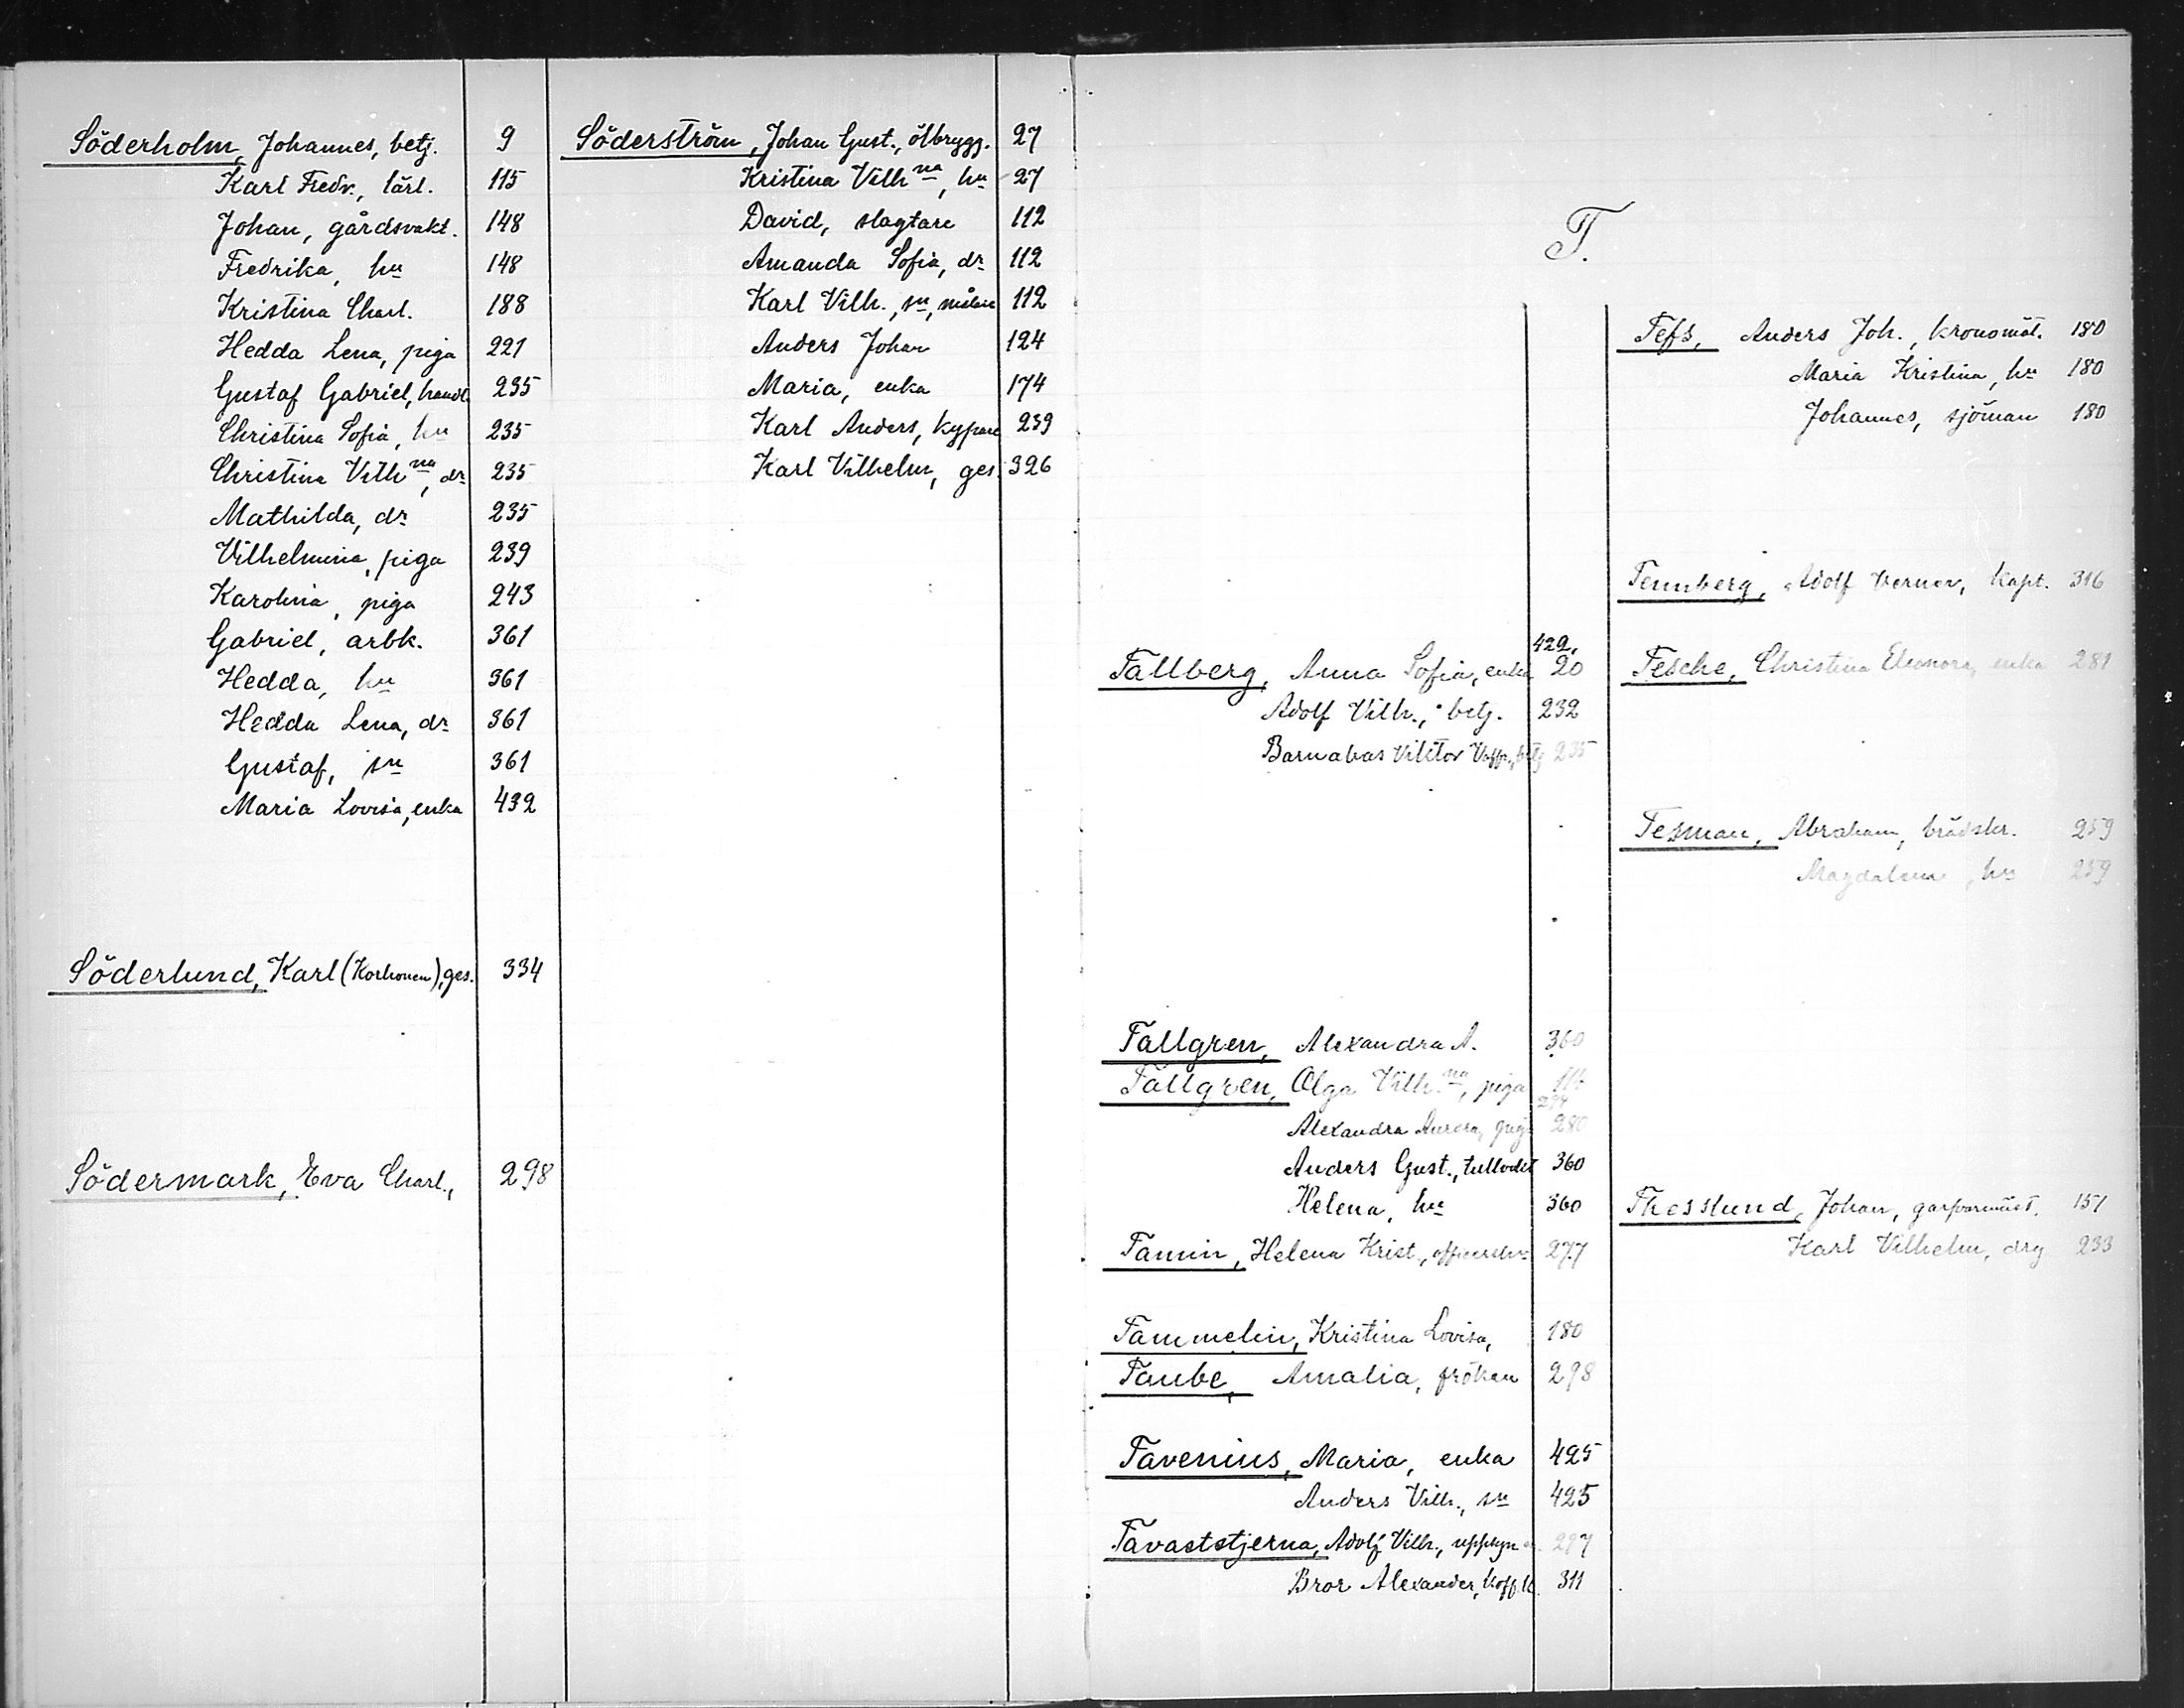 Söderholm, Johannes, betj. 9
Karl Fredr., lärl. 115
Johan, gårdsvakt. 148
Fredrika, hu 148
Kristina Charl. 188
Hedda Lena, piga 221
Gustaf Gabriel, handl. 235
Christina Sofia, hu 235
Christina Vilhna, dr 235
Mathilda, dr 235
Vilhelmina, piga 239
Karolina, piga 243
Gabriel, arbk. 361
Hedda, hu 361
Hedda Lena, dr 361
Gustaf, sn 361
Maria Lovisa, enka 432
Söderlund, Karl (Korhonen), ges. 334
Södermark, Eva Charl., 298
Söderström, Johan Gust., ölbrygg. 27
Kristina Vilhna, hu 27
David, slagtare 112
Amanda Sofia, dr 112
Karl Vilh., sn, målare 112
Anders Johan 124
Maria, enka 174
Karl Anders, kypare 239
Karl Vilhelm, ges. 326
T.
429,
Tallberg, Anna Sofia, enka 20
Adolf Vilh., betj. 232
Barnabas Viktor 235
Tallgren, Alexandra A. 360
Tallgren, Olga Vilh.na, piga
Alexandra Aurora, pig. 280
Anders Gust., 360
Helena, hu 360
Tamin, Helena Krist., 277
Tammelin, Kristina Lovisa, 180
Taube, Amalia, fröken 298
Tavenius, Maria, enka 425
Anders Vilh., sn 425
Tavaststjerna, Adolf Vilh., 297
Bror Alexander, 311
Tefs, Anders Joh., kronomät. 180
Maria Kristina, hu 180
Johannes, sjöman 180
Tennberg, Adolf Verner, kapt. 316
Tesche, Christina Eleonora, enka 281
Tesman, Abraham, 259
Magdalena, hu 259
Thesslund, Johan, garfvarmäst. 151
Karl Vilhelm, drg 233